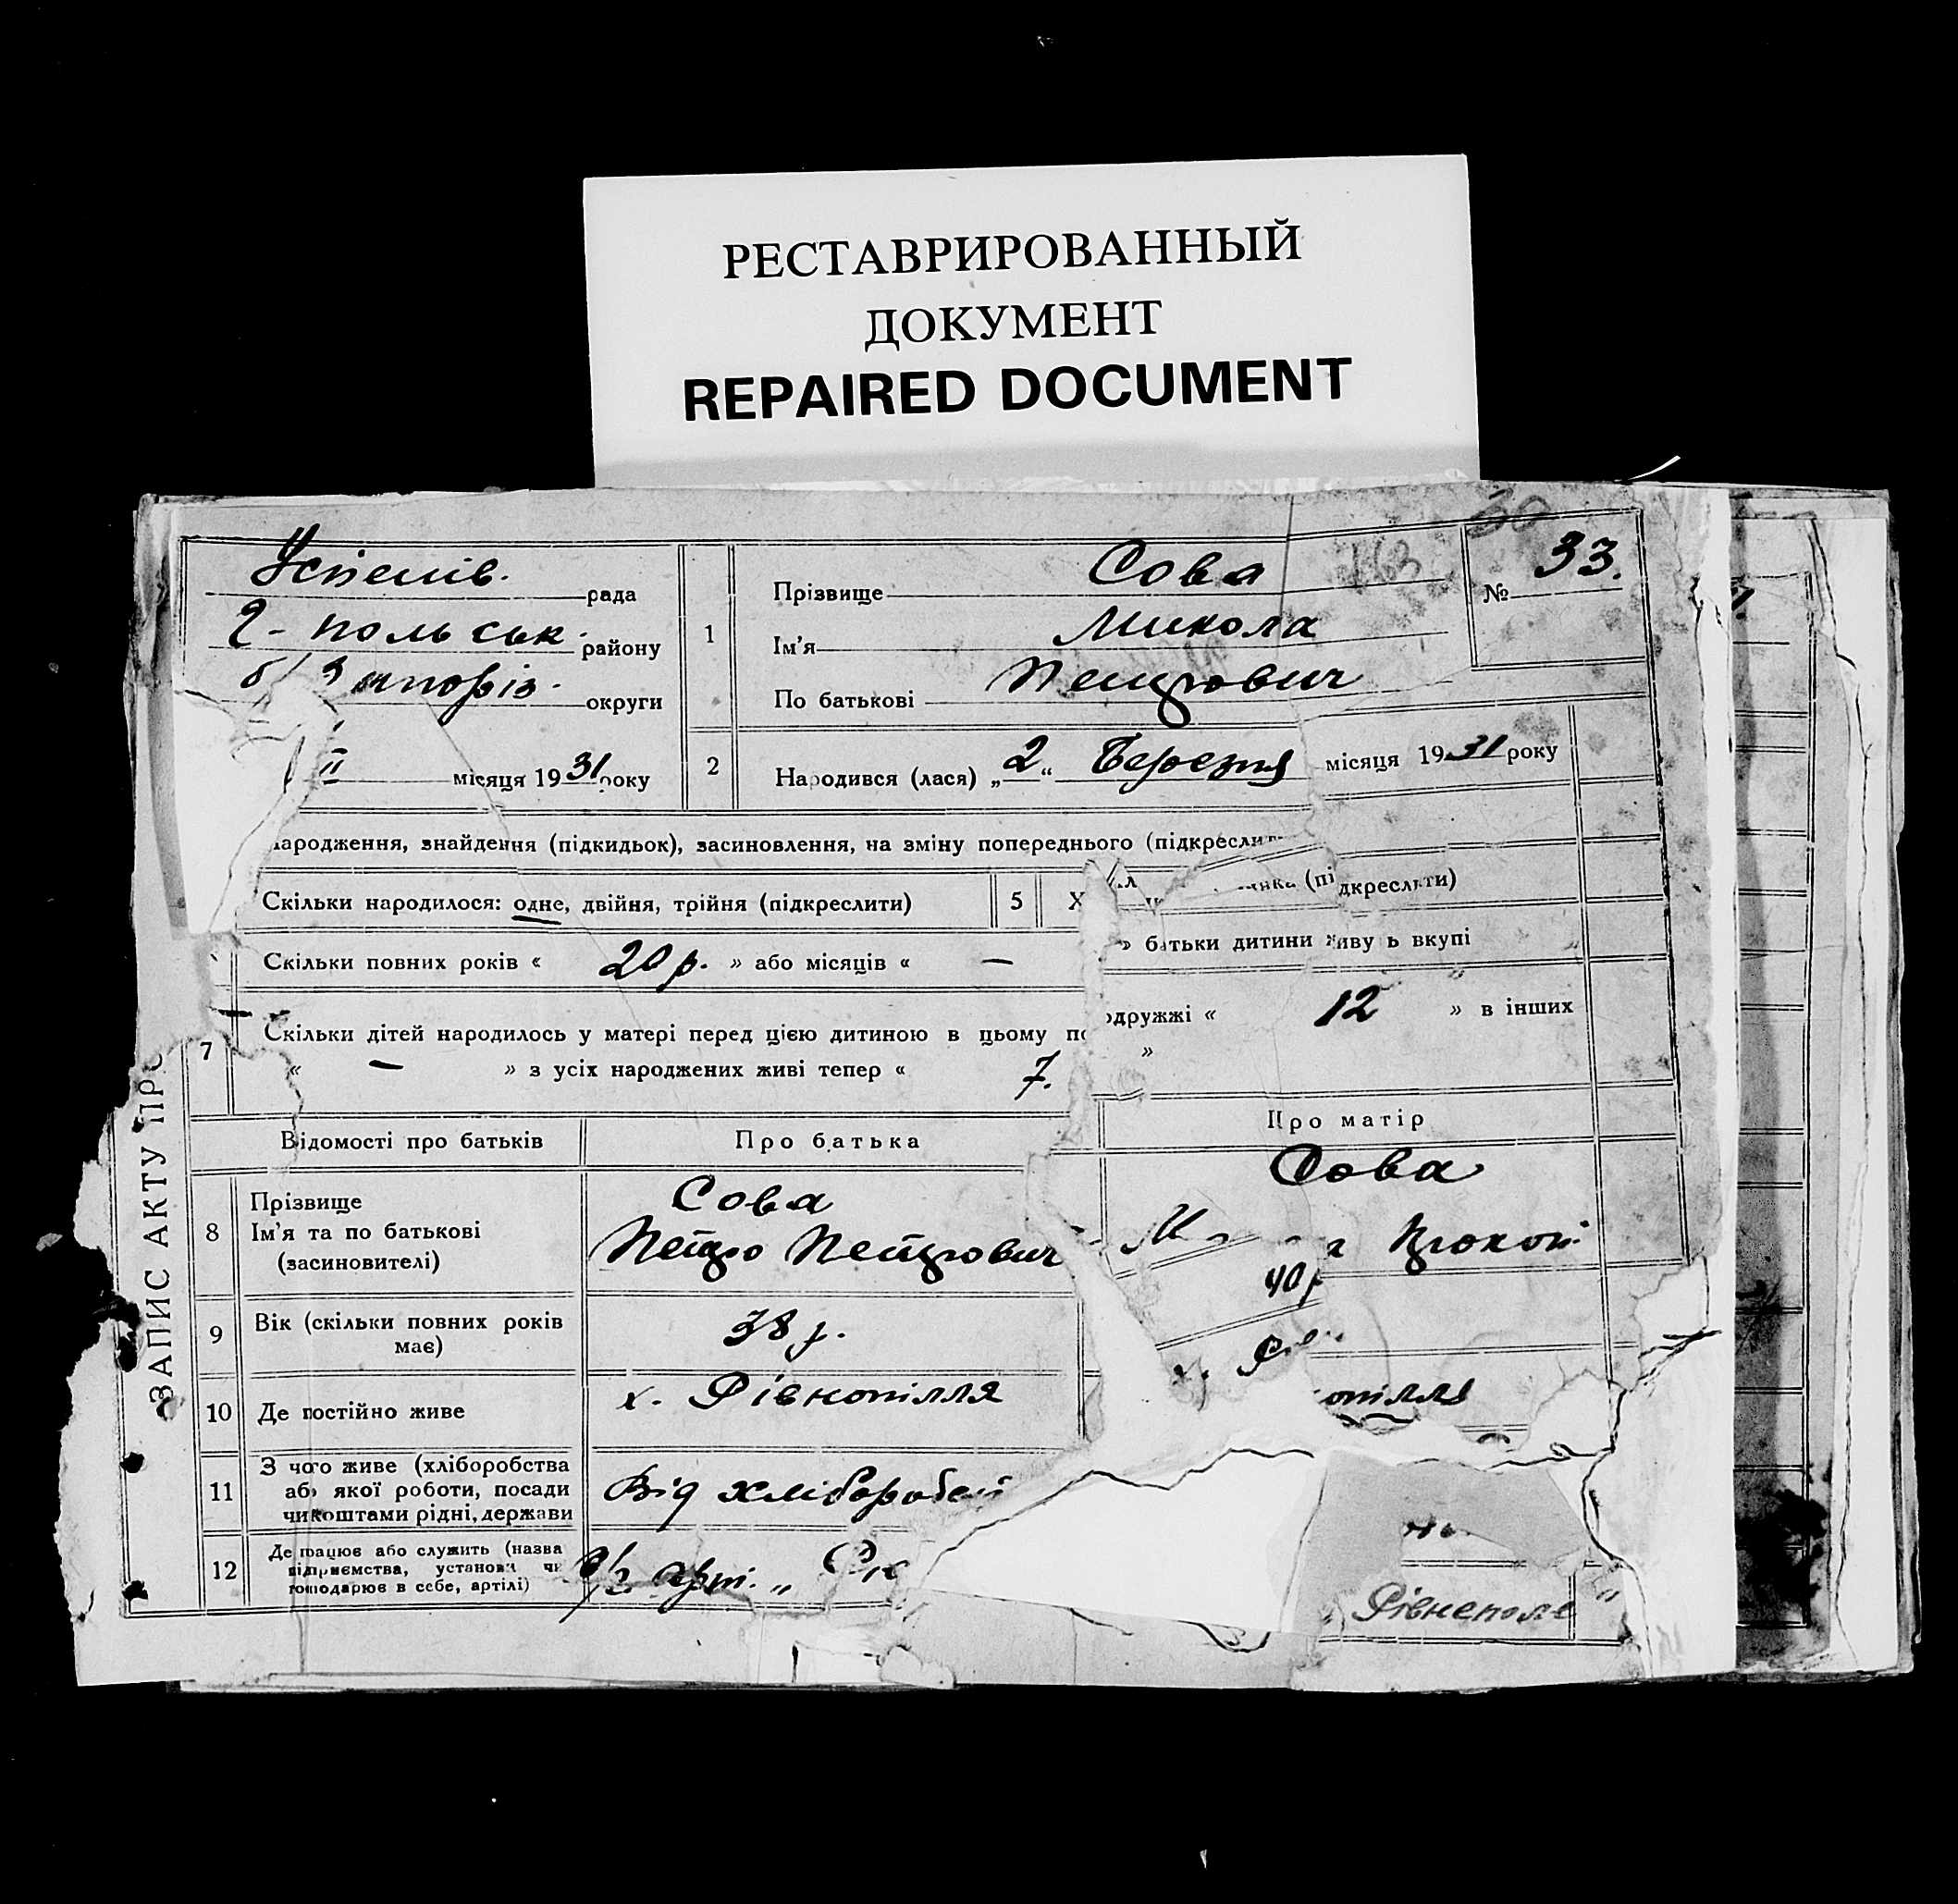 РЕСТАВРИРОВАННЫЙ
ДОКУМЕНТ
REPAIRED DOCUMENT
Успенів. рада
Г-польськ. району
б/Запоріз. округи
II місяця 1931 року
1
Прізвище Сова
Ім'я Микола
По батькові Петрович
№ 33.
163
30
2
Народився (лася) „2“ Березня місяця 1931 року
народження, знайдення (підкидьок), засиновлення, на зміну попереднього (підкреслит
Скільки народилося: одне, двійня, трійня (підкреслити)
5
Х
(підкреслити)
Скільки повних років « 20 р. » або місяців « — » батьки дитини живу ь вкупі
7
Скільки дітей народилось у матері перед цією дитиною в цьому подружжі « 12 » в інших
« — » з усіх народжених живі тепер « 7. »
ЗАПИС АКТУ ПРО
Відомості про батьків
Про батька
Про матір
8
Прізвище
Ім'я та по батькові
(засиновителі)
Сова
Петро Петрович
Сова
М а Прокоп.
9
Вік (скільки повних років
має)
38 р.
40 р
10
Де постійно живе
х. Рівнопілля
х. Рів
опілля
11
З чого живе (хліборобства
або якої роботи, посади
чи коштами рідні, держави
Від хліборобст
12
Де працює або служить (назва
підприємства, установи чи
господарює в себе, артілі)
с/г арт. „ Рів
„ Рівнеполе "